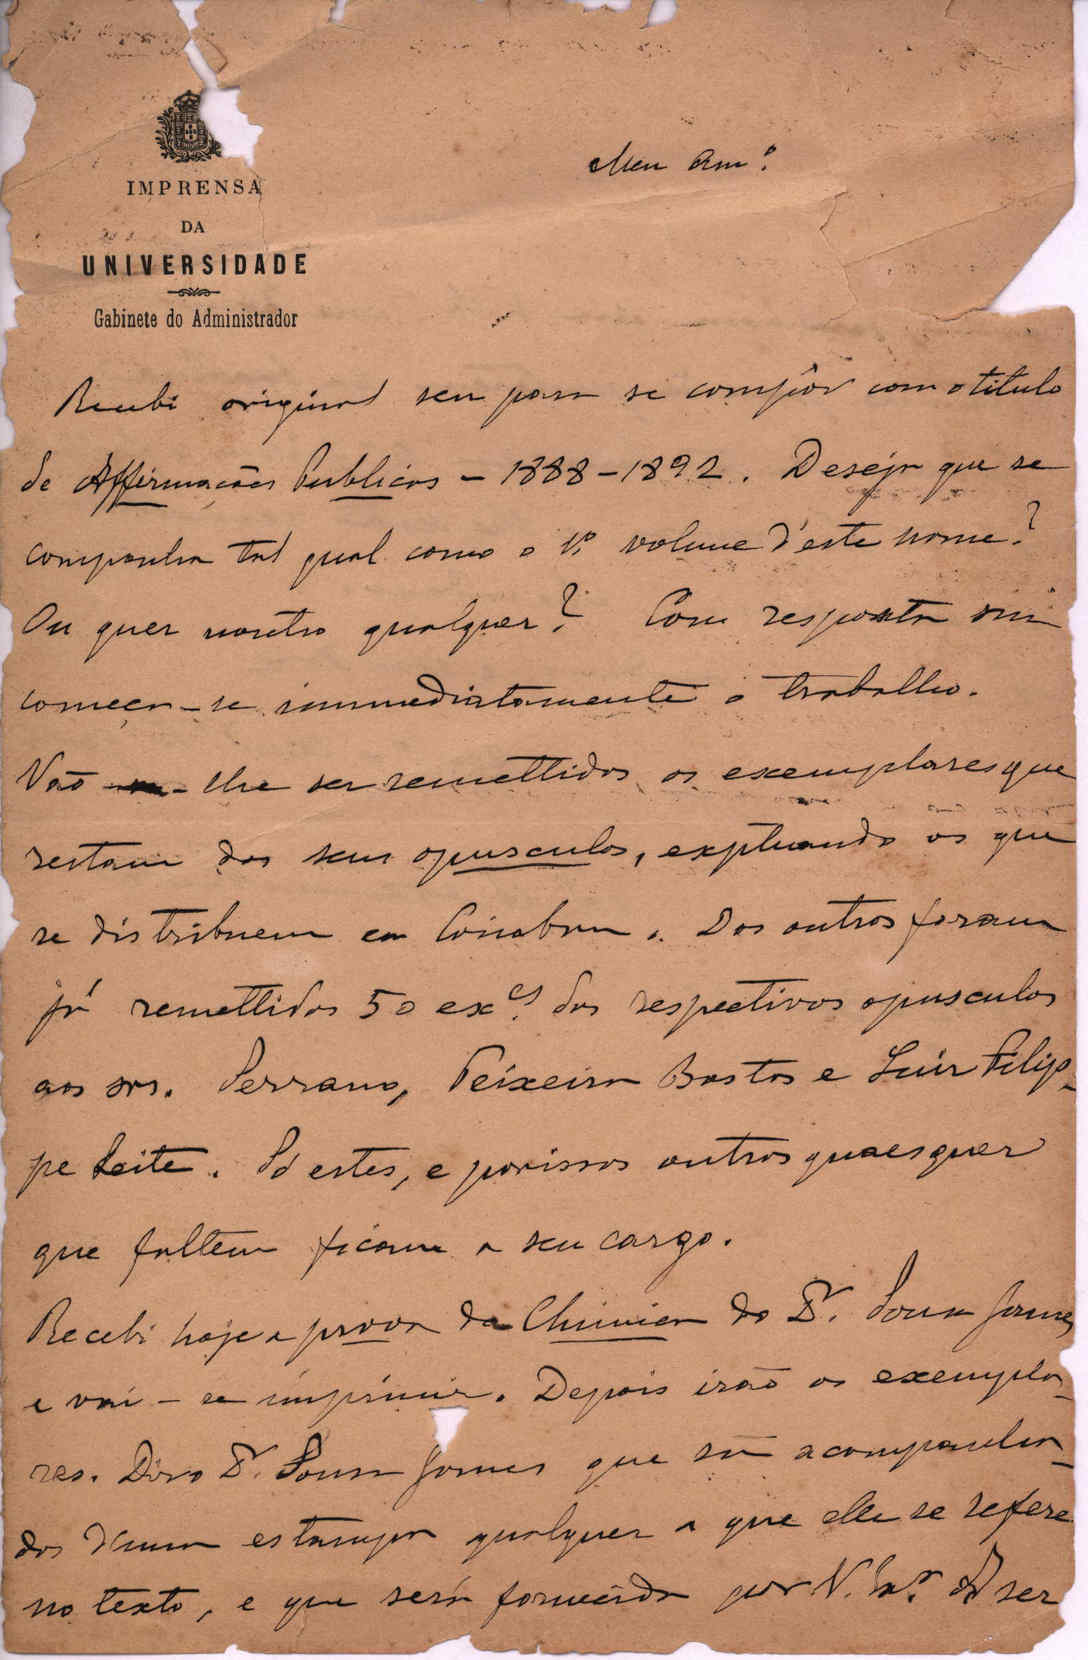 IMPRENSA
DA
UNIVERSIDADE
Gabinete do Administrador
Meu Am.º
Recebi original seu para se compôr com o titulo
de Affirmações Publicas – 1888–1892. Deseja que se
componha tal qual como o 1.º volume d'este nome?
Ou quer noutro qualquer? Com resposta sua
começa-se immediatamente o trabalho.
Vão lhe ser remettidos os exemplares que
restam dos seus opusculos, exptuando os que
se distribuem em Coimbra. Dos outros foram
já remettidos 50 ex.es dos respectivos opusculos
aos srs. Serrano, Teixeira Bastos e Luiz Filip-
pe Leite. Só estes, e porissos outros quaesquer
que faltem ficam a seu cargo.
Recebi hoje a prova da Chimica do Dr. Sousa Gomes
e vai-se imprimir. Depois irão os exempla-
res. Diz o Dr. Sousa Gomes que são acompanha-
dos d'uma estampa qualquer a que elle se refere
no texto, e que será fornecida por V. Ex.ª A ser